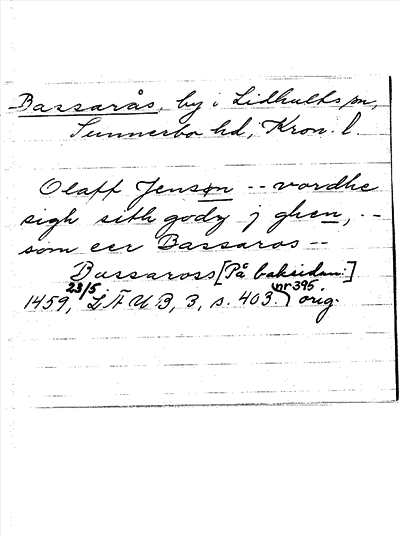 Bassarås, by i Lidhults sn,
Sunnerbo hd, Kron. l.
Olaff Jensøn -- vordhe
sigh sith godz j ghen, --
som eer Bassaros --
Bassaross [På baksidan:]
1459, 23/5 LÄUB, 3, s. 403. nr 395, orig.